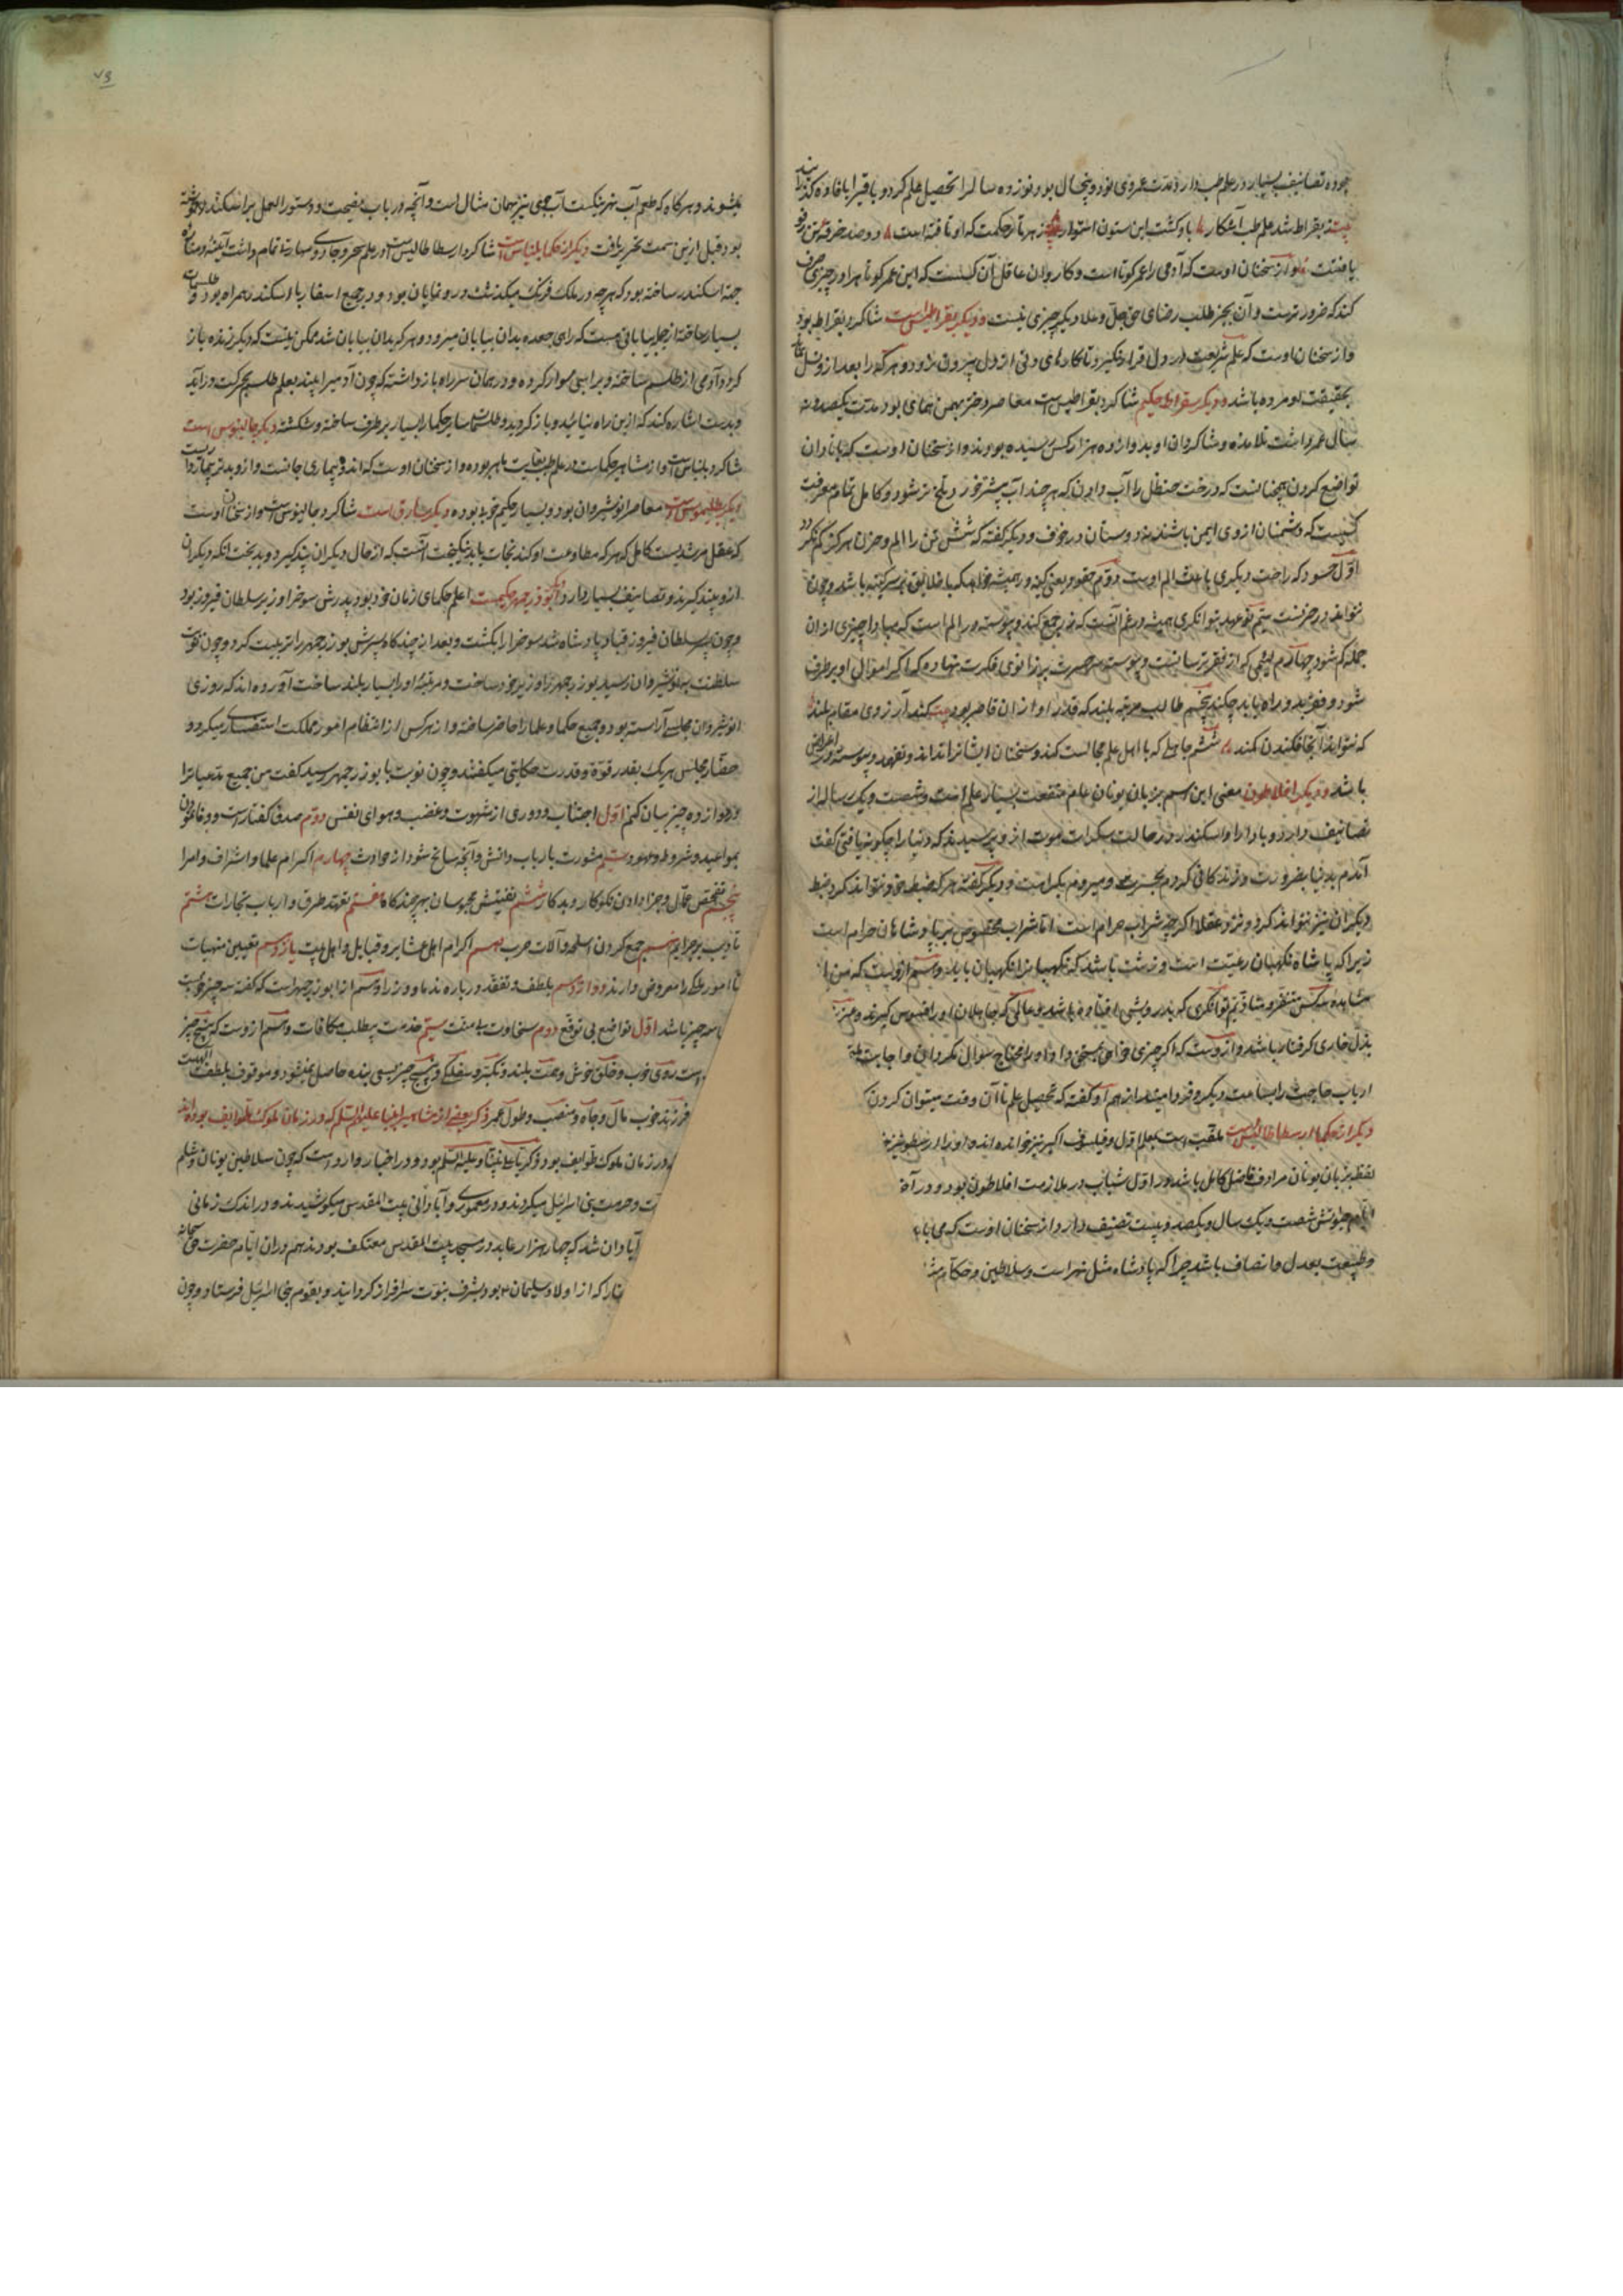 بوده تصانیف بسیار در علم طب دارد و مدت عمر وی نود و پنج سال بود و نوزده سال را تحصیل علم کرد و باقی را بافاده گذرانید
بیت ز بقراط شد علم طب آشکار
یافتند و از سخنان اوست که آدمی را عمر کوتاه است و کار عاقل آن کسست که این عمر کوتاه را در چیزی صرف
کند که ضرورترست و آن بجز طلب رضای حق جل و علا دیگر چیزی نیست و دیگر بقراطیس است شاگرد بقراط بود
و از سخنان اوست که علم شریعت در دل قرار نگیرد تا کارهای دنی از دل بیرون نرود و هر که را بعد از وی
بحقیقت او مرده باشد و دیگر سقراط حکیم شاگرد بقراطیس است معاصر دختر بهمن همای بود مدت یکصد و نه
سال عمر داشت تلامذه و شاگردان او بدوازده هزار کس رسیده بودند و از سخنان اوست که با نادان
تواضع کردن همچنانست که درخت حنظل را آب دادن که هر چند آب بیشتر خورد تلخ تر شود و کامل تمام معرفت
کسیست که دشمنان از وی ایمن باشند نه دوستان در خوف و دیگر گفته که شش تن را الم و حزن هرگز کم نگردد
اول حسود که راحت دیگری باعث الم اوست دوم حقود یعنی کینه ور
سیم نو عهد بتوانگری همیشه در غم آنست که زر جمع کند و پیوسته در الم است که مبادا چیزی ازان
جمله کم شود چهارم لئیمی که از فقر ترسانست و پیوسته سر حسرت بر زانوی فکرت نهاده که اکر اموال او برطرف
شود و فقر بدو راه یابد چکند پنجم طالب مرتبه بلند که قدر او ازان قاصر بود بیت کند آرزوی مقام بلند
که نتواند آنجا فکندن کمند ششم جاهلی که با اهل علم مجالست کند و سخنان ایشانرا نداند و نفهمد و پیوسته در اعراض
باشد و دیگر افلاطون معنی این اسم بزبان یونان عام منفعت بسیار علم است و شصت و یک رساله از
تصانیف دارد و با دارا و اسکندر در حالت سکرات موت از و پرسیدند که دنیا را چگونه یافتی گفت
آمدم بدنیا بضرورت و زندگانی کردم بحیرت و میروم بکراهت و دیگر گفته هر که ضبط خود نتواند کرد ضبط
دیگران نیز نتواند کرد و نزد عقلا اگر چه شراب حرام است اما شراب مخصوص بر پادشاهان حرام است
زیرا که پادشاه نگهبان رعیت است و زشت باشد که نگهبانرا نگهبان باید و هم ازوست که من از
مشاهده سه کس متنفر و متاذیم توانگری که بدرویشی افتاده باشد و عالمی که جاهلان او را افسوس گیرند و عزیز
بذل خاری گرفتار باشد و ازوست که اگر چیزی خواهی بمحتاج سوال نکرده
ارباب حاجت را بساعت دیگر و فردا مینداز هم او گفته که تحصیل علم تا آن وقت میتوان کردن
دیگر از حکما ارسطاطالیس است ملقب است بمعلم اول و فیلسوف اکبر نیز خوانده اند او را ارسطو نیز
لفظ بزبان یونان مرادف فاضل کامل باشد در اول شباب در ملازمت افلاطون بود و در آخر
ایام عمرش شصت و یک سال و یکصد و بیست تصنیف دارد از سخنان اوست که می باید
و طبیعت بعدل و انصاف باشد چرا که پادشاه مثل نهر است و سلاطین و حکام
۷۵
میشوند و هرگاه که طعم آب نهر نیکست آب جوی نیز بهمان مثال است و آنچه در باب نصیحت و دستور العمل برای اسکندر نوشته
بود قبل ازین سمت تحریر یافت دیگر از حکما بلیناس است شاگرد ارسطاطالیس است در علم سحر و جادوی مهارت تمام داشت آیینه و مناره
جهة اسکندر ساخته بود که هر چه در ملک فرنگ میگذشت درو نمایان بود و در جمیع اسفار با اسکندر همراه بود و طلسمات
بسیار ساخته از جمله بیابانی هست که راهی بدان بیابان میرود و هر که بدان بیابان شد ممکن نیست که دیگر زنده باز
گردد آدمی از طلسم ساخته و بر اسبی سوار کرده و در همان سر راه بازداشته که چون آدمی را بیند بعلم طلسم بحرکت درآید
و بدست اشاره کند که ازین راه نیائید و باز گردید و طلسمات سایر حکما را بسیار برطرف ساخته و شکسته دیگر جالینوس است
شاگرد بلیناس است و از مشاهیر حکماست در علم طب بغایت ماهر بوده و از سخنان اوست که اندوه بیماری جانست
دیگر بطلیموس است معاصر انوشیروان بود و بسیار حکیم خوبی بوده دیگر شارق است شاگرد جالینوس است و از سخنان اوست
که عقل مرشدیست کامل که هر که مطاوعت او کند نجات یابد نیکبخت آنست که از حال دیگران پند گیرد و بدبخت آنکه دیگران
ازو پند گیرند و تصانیف بسیار دارد و دیگر ابوذرجمهر حکیمست اعلم حکمای زمان خود بود پدرش سوخرا وزیر سلطان فیروز بود
و چون پسر سلطان فیروز قباد پادشاه شد سوخرا را بکشت و بعد از چندگاه پسرش بوزرجمهر را تربیت کرد و چون نوبت
سلطنت بنوشیروان رسید بوزرجمهر را وزیر خود ساخت و مرتبه او را بسیار بلند ساخت آورده اند که روزی
انوشیروان مجلسی آراسته بود و جمیع حکما و علما را حاضر ساخته و از هر کس از انتظام امور مملکت استفسار میکرد و
حضار مجلس هر یک بقدر قوة و قدرت حکایتی میگفتند و چون نوبت بابوزرجمهر رسید گفت من جمیع مدعیاترا
در دوازده چیز بیان کنم اول اجتناب و دوری از شهوت و غضب و هوای نفس دوم صدق گفتار است و وفا نمودن
بمواعید و شروط و عهود سیم مشورت با ارباب دانش و آنچه سانح شود از حوادث چهارم اکرام علما و اشراف و امرا
پنجم تفحص عمال و جزا دادن نکوکار و بدکار ششم تفتیش محبوسان بهر چندگاه هفتم تعهد طرق و ارباب تجارات هشتم
تادیب بر جرایم نهم جمع کردن اسلحه و آلات حرب دهم اکرام اهل عشایر و قبایل و اهل بیت یازدهم تعیین منهیات
تا امور ملک را معروض دارند دوازدهم بلطف و تفقد درباره ندما و وزرا و هم از ابوزرجمهر است که گفته سه چیز خوبست
با سه چیز باشد اول تواضع بی توقع دوم سخاوت بی منت سیم خدمت بی طلب مکافات و هم ازوست که پنج چیز
است روی خوب و خلق خوش و همت بلند و تکبر و سفلگی و پنج چیز بسعی بنده حاصل نمیشود و موقوف بلطف الهیست
فرزند خوب مال و جاه و منصب و طول عمر ذکر بعضی از مشاهیر انبیا علیهم السلام که در زمان ملوک طوایف بوده اند
در زمان ملوک طوایف بود ذکریا علی نبینا و علیه السلام بود و در اخبار وارد است که چون سلاطین یونان و شام
حرمت بنی اسرائیل میکردند و در معموری و آبادانی بیت المقدس میکوشیدند و در اندک زمانی
آبادان شد که چهار هزار عابد در مسجد بیت المقدس معتکف بودند هم دران ایام حضرت حق سبحانه
را که از اولاد سلیمان بود بشرف نبوت سرافراز گردانید و بقوم بنی اسرائیل فرستاد و چون